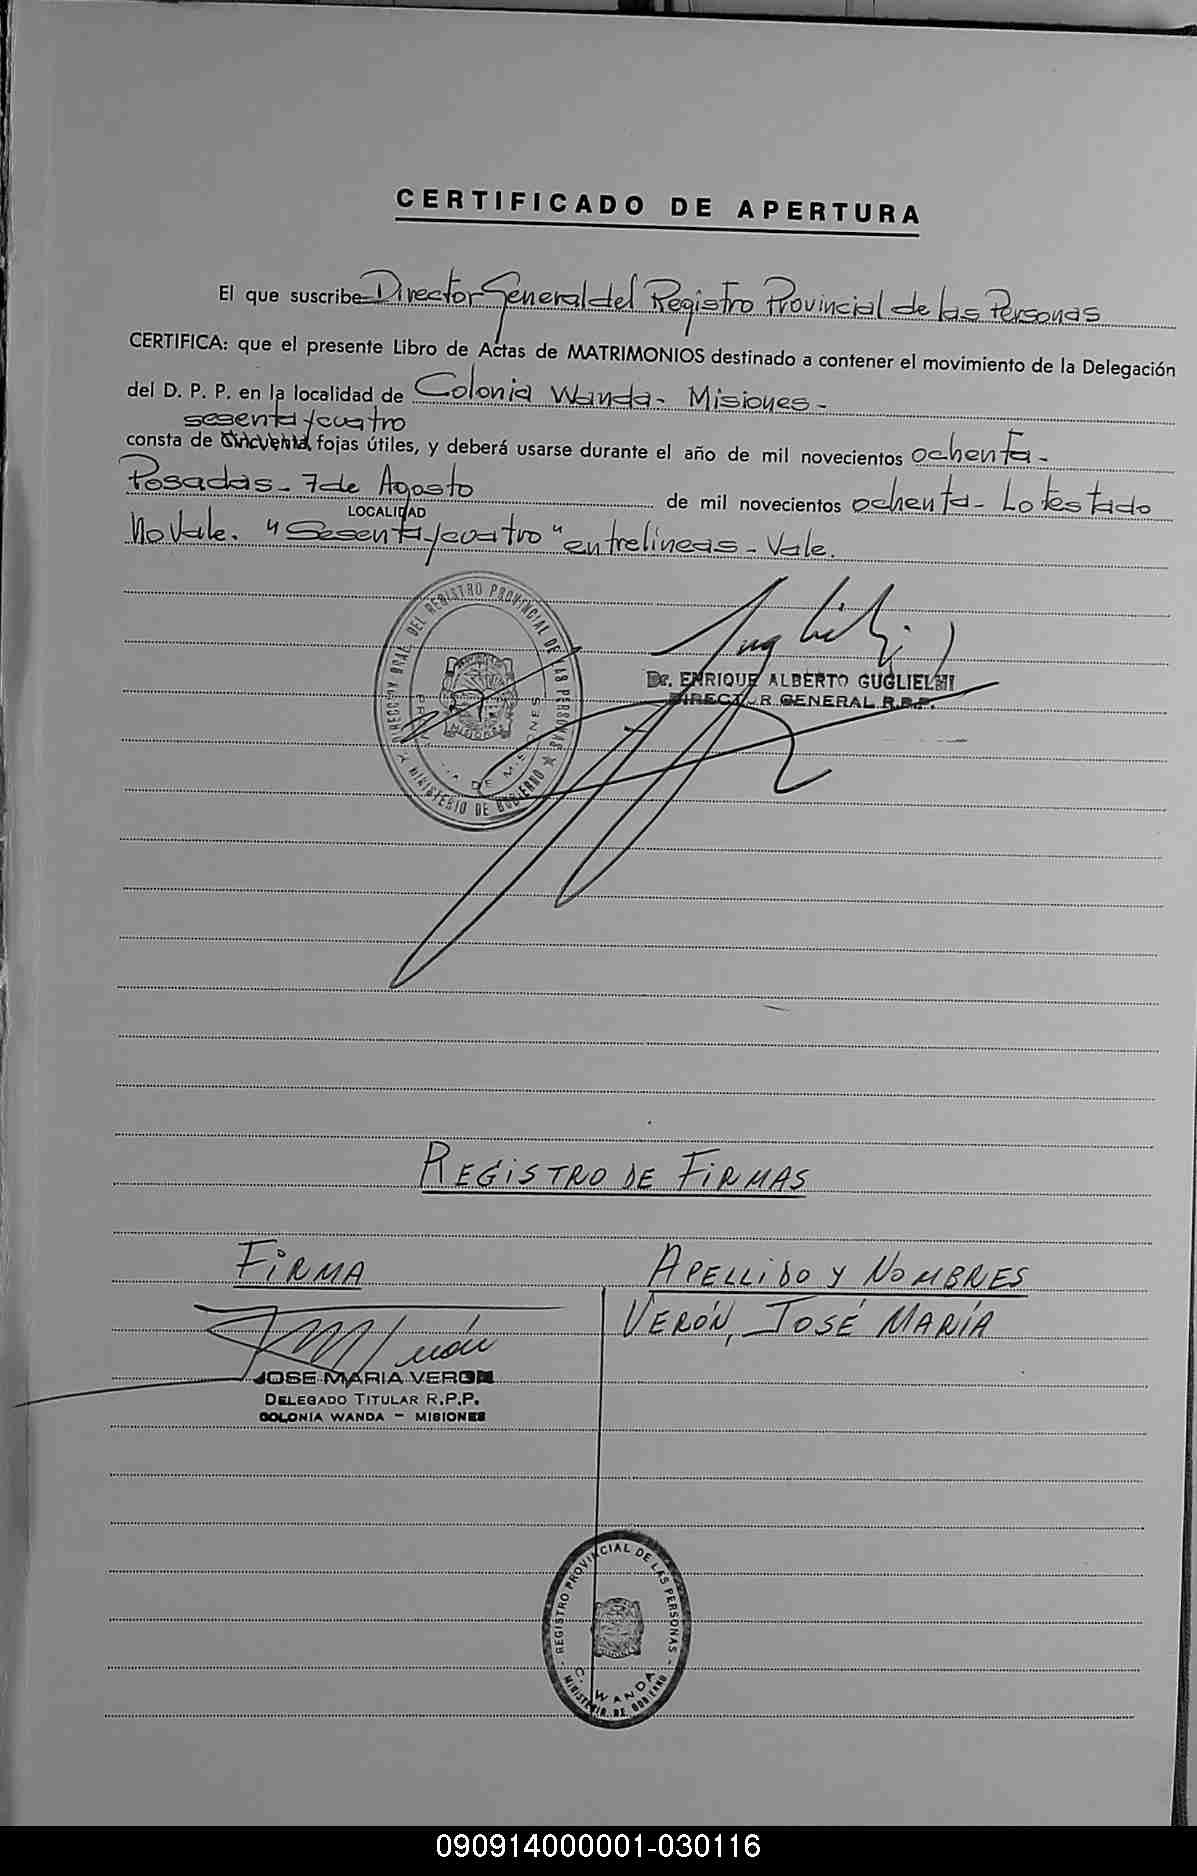 CERTIFICADO DE APERTURA
El que suscribe Director General del Registro Provincial de las Personas
CERTIFICA: que el presente Libro de Actas de MATRIMONIOS destinado a contener el movimiento de la Delegación
del D. P. P. en la localidad de Colonia Wanda - Misiones -
sesenta y cuatro
consta de cincuenta fojas útiles, y deberá usarse durante el año de mil novecientos ochenta -
Posadas - 7 de Agosto de mil novecientos ochenta - Lo testado
LOCALIDAD
No Vale. "Sesenta y cuatro" entrelineas - Vale.
DIRECCION GRAL. DEL REGISTRO PROVINCIAL DE LAS PERSONAS
MINISTERIO DE GOBIERNO
Dr. ENRIQUE ALBERTO GUGLIELMI
DIRECTOR GENERAL R.P.P.
REGISTRO DE FIRMAS
FIRMA APELLIDO Y NOMBRES
VERÓN, JOSÉ MARÍA
JOSE MARIA VERON
DELEGADO TITULAR R.P.P.
COLONIA WANDA - MISIONES
REGISTRO PROVINCIAL DE LAS PERSONAS
C. WANDA
MINISTERIO DE GOBIERNO
090914000001-030116